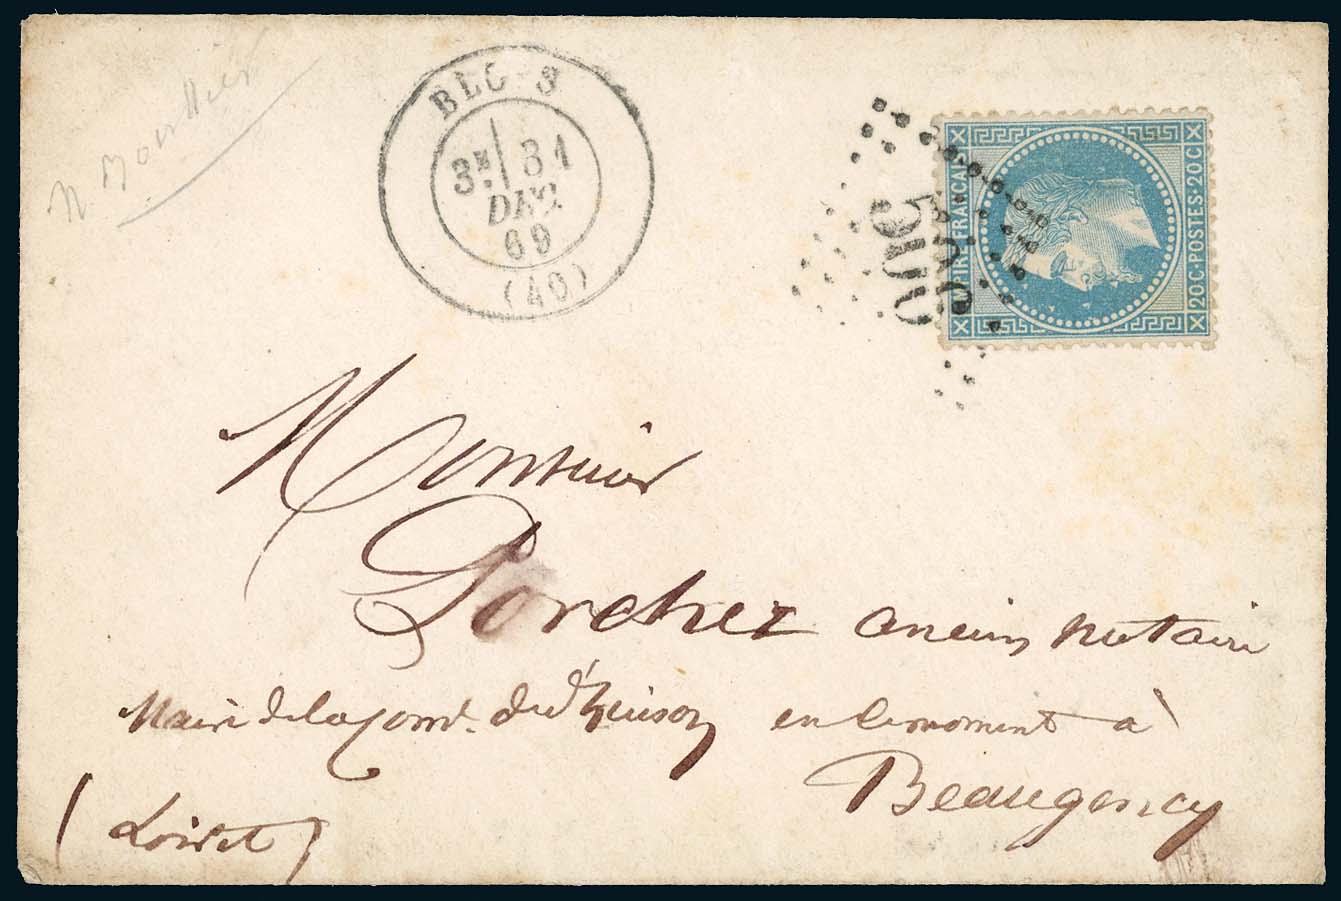 BLO-S
3E 31
DEC
69
(40)
EMPIRE FRANCAIS
20C·POSTES·20C
Monsieur
Porcher ancien notaire
Maire de la Com. d'Huison en ce moment à
Beaugency
(Loiret)